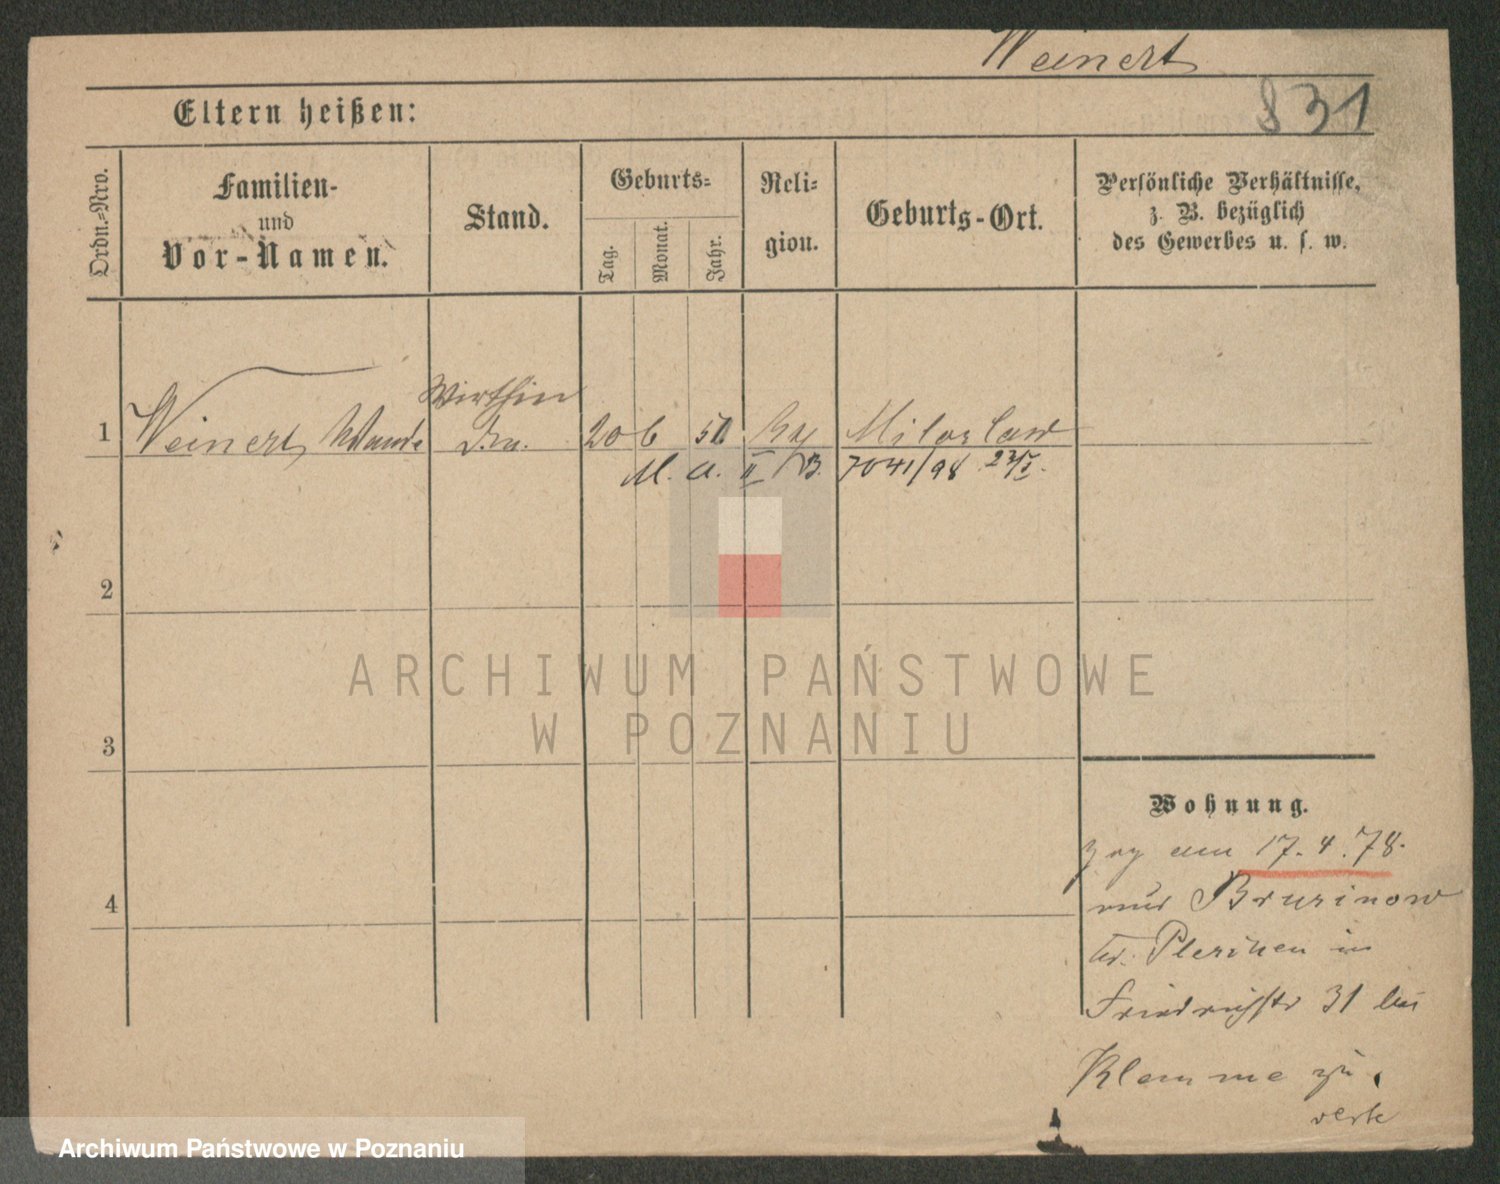 Weinert
831
Eltern heißen:
Ordn.-Nro.
Familien-
und
Vor-Namen.
Stand.
Geburts-
Tag.
Monat.
Jahr.
Reli-
gion.
Geburts-Ort.
Persönliche Verhältnisse,
z. B. bezüglich
des Gewerbes u. s. w.
Wirthin
1 Weinert, Wanda 20 6 Miloslaw
M. A. II B. 7041/98
2
3
4
Wohnung.
zog am 17. 4. 78.
aus
Kr. Pleschen in
Friedrichstr 31 bei
Klemme zu
ARCHIWUM PAŃSTWOWE
W POZNANIU
Archiwum Państwowe w Poznaniu